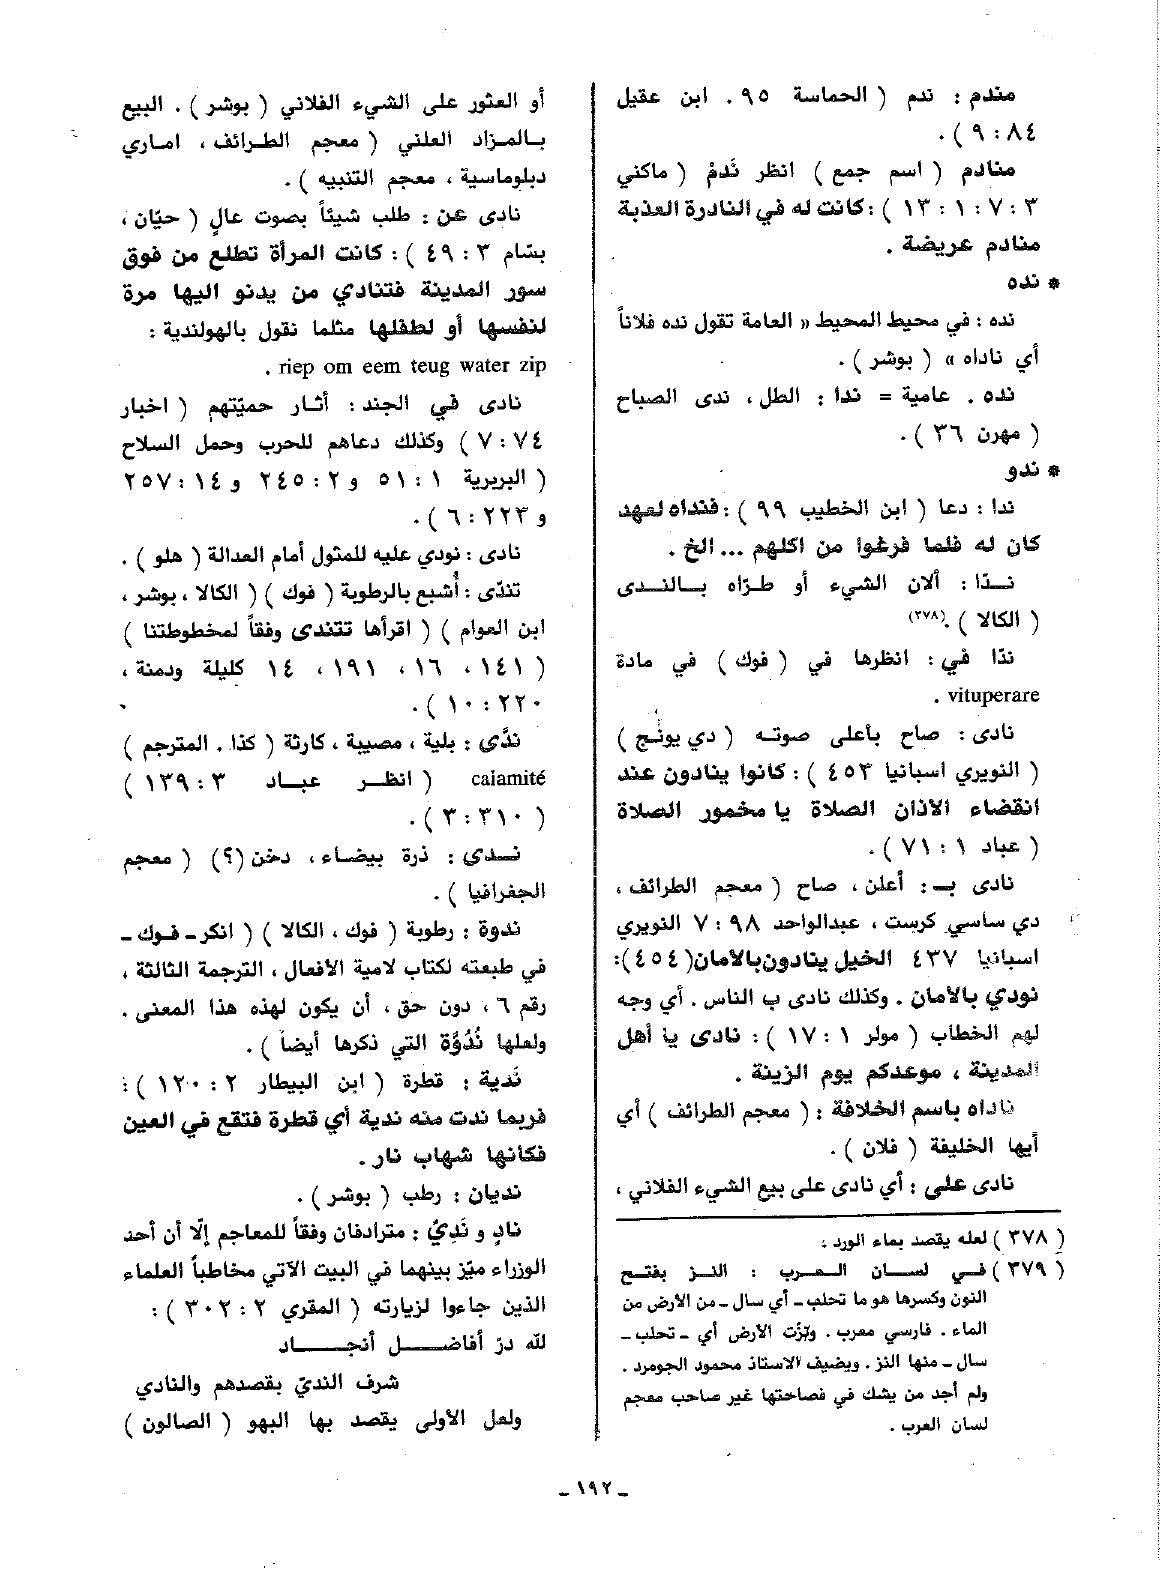 مندم : ندم ( الحماسة ٩٥ . ابن عقيل
٨٤ : ٩ ) .
منادم ( اسم جمع ) انظر نَدمْ ( ماكني
٣ : ٧ : ١ : ١٣ ) : كانت له في النادرة العذبة
منادم عريضة .
* نده
نده : في محيط المحيط « العامة تقول نده فلاناً
أي ناداه » ( بوشر ) .
نده . عامية = ندا : الطل ، ندى الصباح
( مهرن ٣٦ ) .
* ندو
ندا : دعا ( ابن الخطيب ٩٩ ) : فنداه لعهد
كان له فلما فرغوا من اكلهم ... الخ .
نــدّا : ألان الشيء أو طرّاه بــالنــدى
( الكالا ) .(٣٧٨)
ندّا في : انظرها في ( فوك ) في مادة
vituperare .
نادى : صاح بأعلى صوته ( دي يونج )
( النويري اسبانيا ٤٥٣ ) : كانوا ينادون عند
انقضاء الأذان الصلاة يا مخمور الصلاة
( عباد ١ : ٧١ ) .
نادى بـ : أعلن ، صاح ( معجم الطرائف ،
دي ساسي كرست ، عبدالواحد ٩٨ : ٧ النويري
اسبانيا ٤٣٧ الخيل ينادون بالأمان ( ٤٥٤ ) :
نودي بالأمان . وكذلك نادى ب الناس . أي وجه
لهم الخطاب ( مولر ١ : ١٧ ) : نادى يا أهل
المدينة ، موعدكم يوم الزينة .
ناداه باسم الخلافة : ( معجم الطرائف ) أي
أيها الخليفة ( فلان ) .
نادى على : أي نادى على بيع الشيء الفلاني ،
( ٣٧٨ ) لعله يقصد بماء الورد .
( ٣٧٩ ) في لســان العــرب : النــز بفتــح
النون وكسرها هو ما تحلب ـ أي سال ـ من الأرض من
الماء . فارسي معرب . ونزّت الأرض أي ـ تحلب ـ
سال ـ منها النز . ويضيف الاستاذ محمود الجومرد .
ولم أجد من يشك في فصاحتها غير صاحب معجم
لسان العرب .
أو العثور على الشيء الفلاني ( بوشر ) . البيع
بالمزاد العلني ( معجم الطرائف ، اماري
دبلوماسية ، معجم التنبيه ) .
نادى عن : طلب شيئاً بصوت عالٍ ( حيّان ،
بسّام ٣ : ٤٩ ) : كانت المرأة تطلع من فوق
سور المدينة فتنادي من يدنو اليها مرة
لنفسها أو لطفلها مثلما نقول بالهولندية :
riep om eem teug water zip .
نادى في الجند : أثار حميّتهم ( اخبار
٧٤ : ٧ ) وكذلك دعاهم للحرب وحمل السلاح
( البربرية ١ : ٥١ و ٢ : ٢٤٥ و ١٤ : ٢٥٧
و ٢٢٣ : ٦ ) .
نادى : نودي عليه للمثول أمام العدالة ( هلو ) .
تندّى : أُشبع بالرطوبة ( فوك ) ( الكالا ، بوشر ،
ابن العوام ) ( اقرأها تتندى وفقاً لمخطوطتنا )
( ١٤١ ، ١٦ ، ١٩١ ، ١٤ كليلة ودمنة ،
٢٢٠ : ١٠ ) .
ندًّى : بلية ، مصيبة ، كارثة ( كذا . المترجم )
calamité ( انظــر عبــاد ٣ : ١٣٩ )
( ٣١٠ : ٣ ) .
نــدى : ذرة بيضاء ، دخن (؟) ( معجم
الجغرافيا ) .
ندوة : رطوبة ( فوك ، الكالا ) ( انكر ـ فوك ـ
في طبعته لكتاب لامية الأفعال ، الترجمة الثالثة ،
رقم ٦ ، دون حق ، أن يكون لهذه هذا المعنى .
ولعلها نُدُوَّة التي ذكرها أيضاً ) .
نَدية : قطرة ( ابن البيطار ٢ : ١٢٠ ) :
فربما ندت منه ندية أي قطرة فتقع في العين
فكانها شهاب نار .
نديان : رطب ( بوشر ) .
نادٍ و نَدِيّ : مترادفان وفقاً للمعاجم إلّا أن أحد
الوزراء ميّز بينهما في البيت الآتي مخاطباً العلماء
الذين جاءوا لزيارته ( المقري ٢ : ٣٠٢ ) :
لله درّ أفاضـــل أنجـــاد
شرف النديّ بقصدهم والنادي
ولعل الأولى يقصد بها البهو ( الصالون )
ـ ١٩٢ ـ